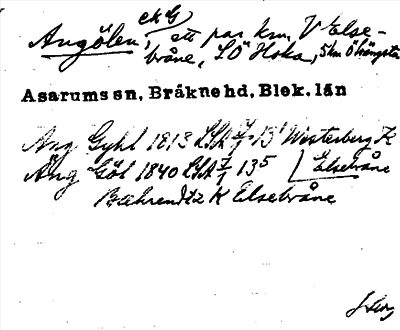 ek G
Angölen, ett par km V Else-
bråne, SÖ Hoka, 5 km Ö
Asarums sn, Bräkne hd, Blek. län
Äng Gyhl 1813 LSA 13 Westerberg K
Äng Göl 1840 LSA 13⁵ Elsebråne
Bæhrendtz K Elsebråne